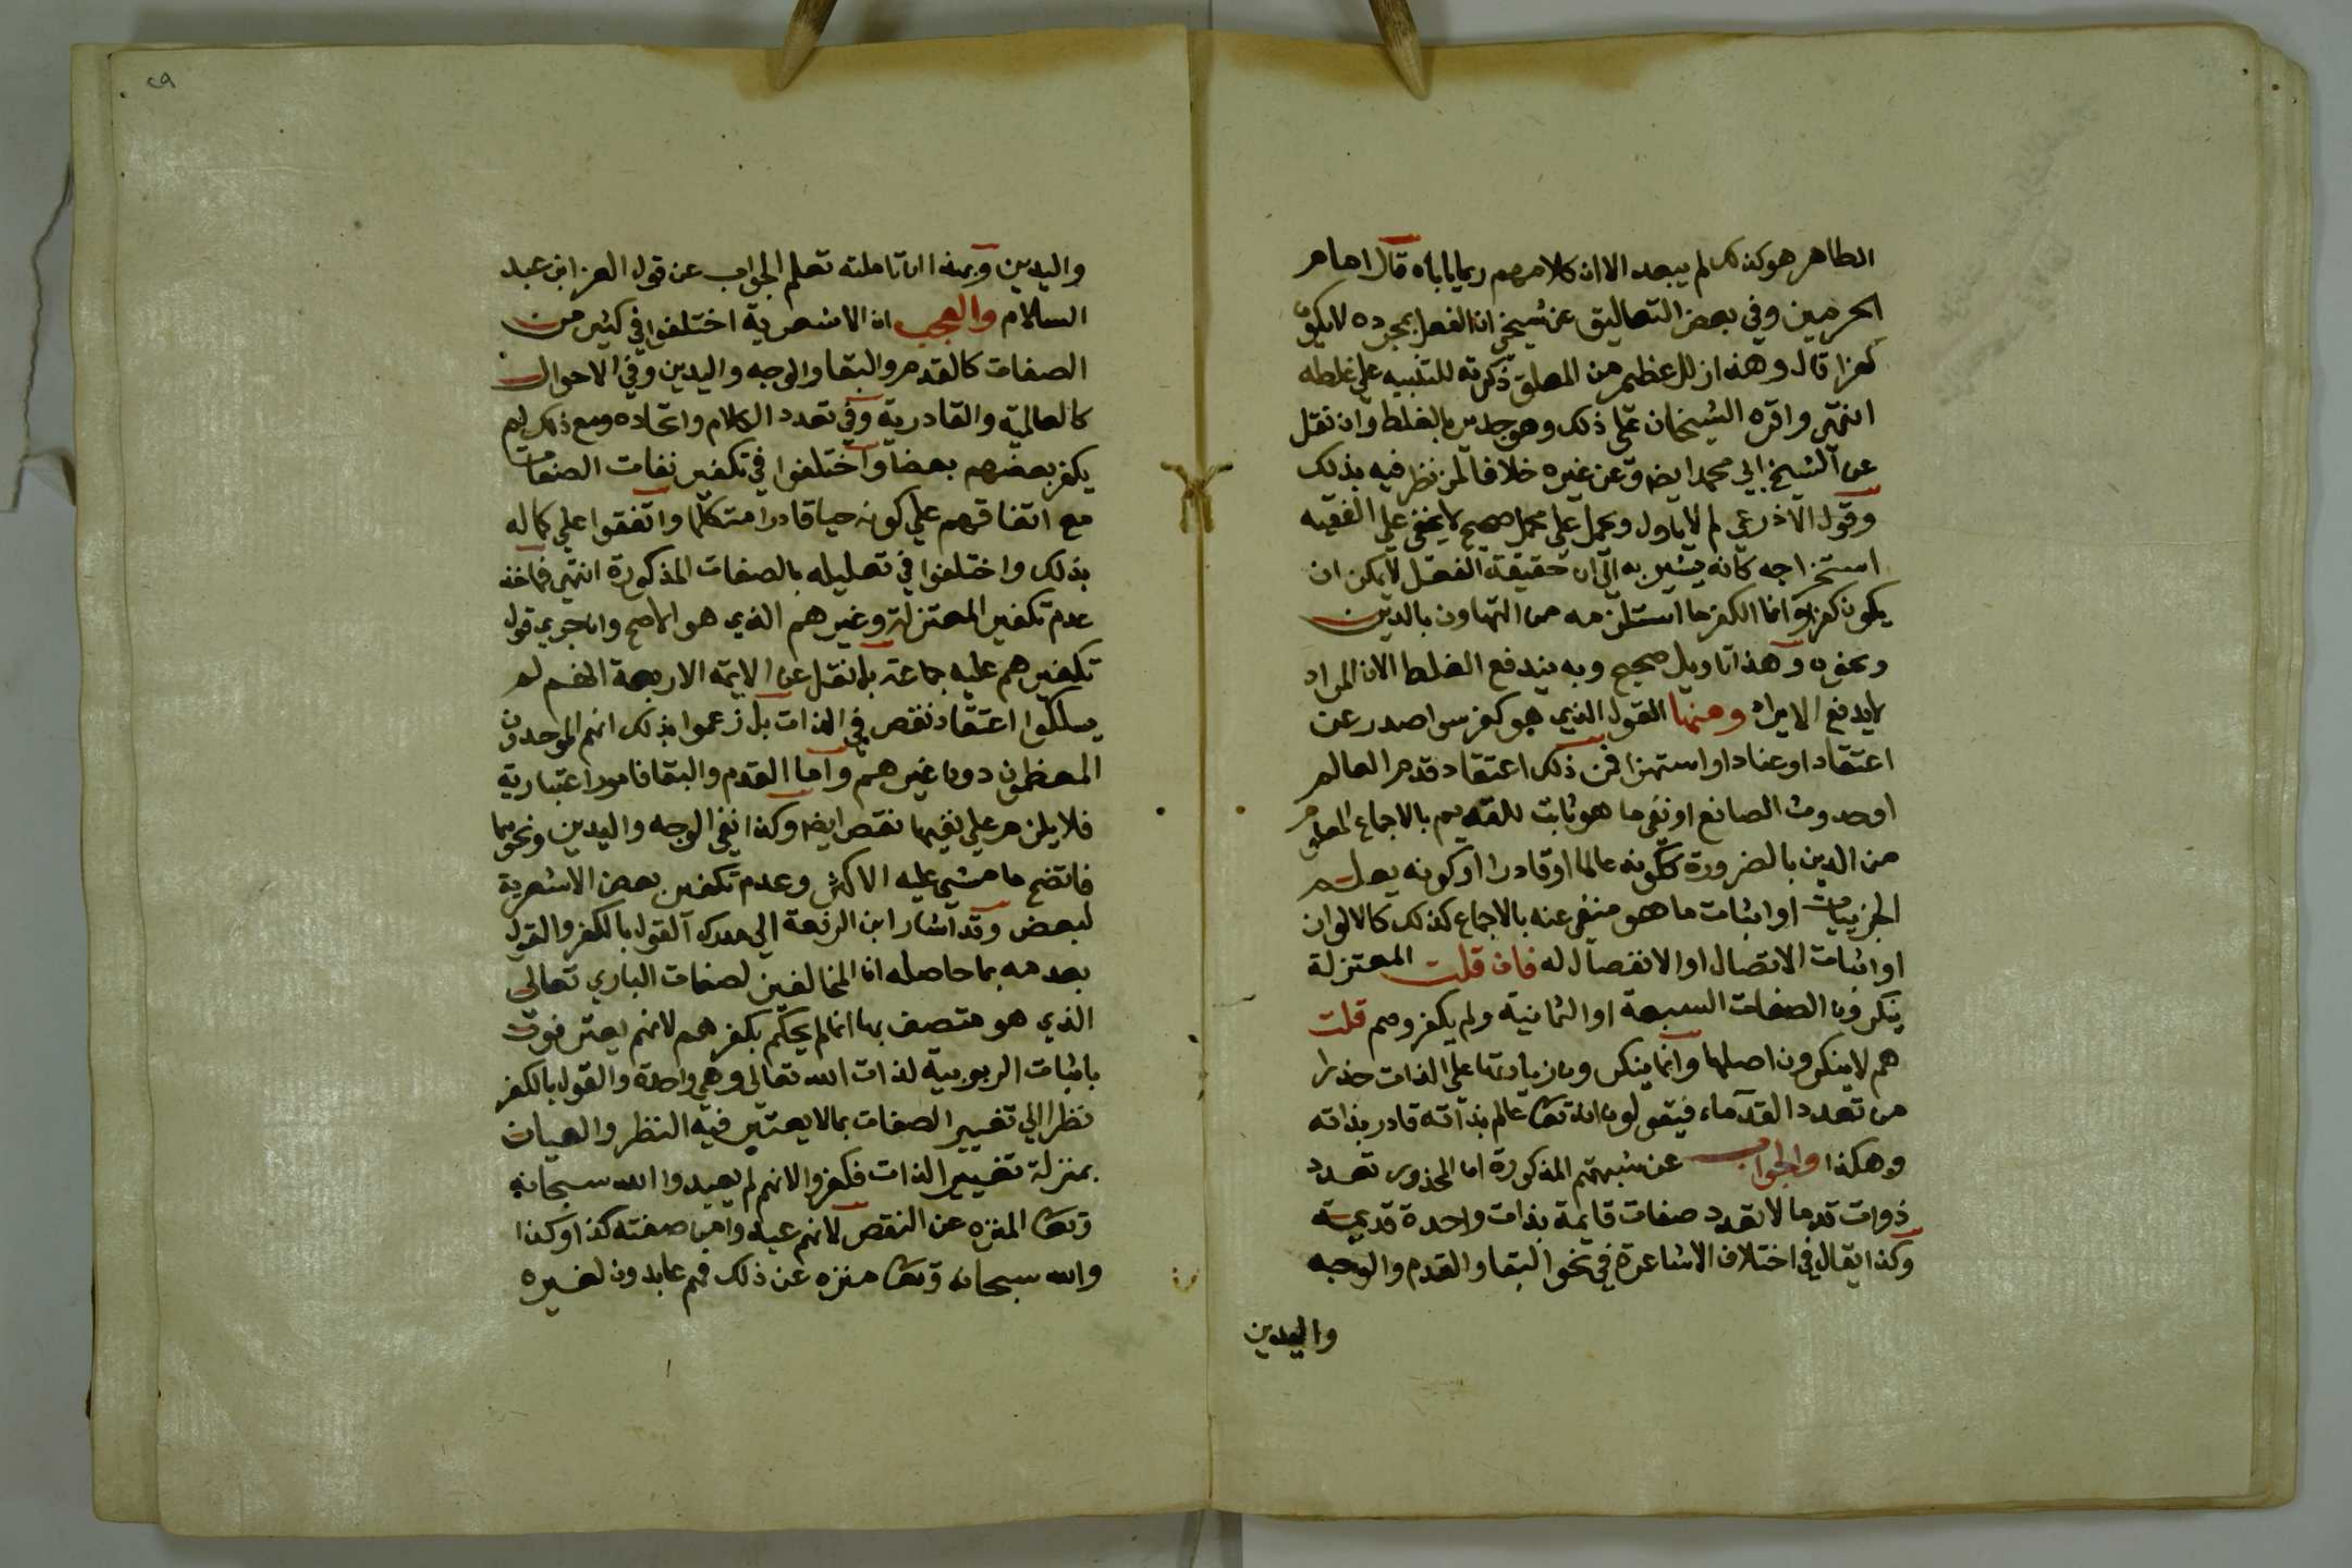 الطاهر هو كذلك لم يبعد الا ان كلامهم ربما ياباه قال امام
الحرمين وفي بعض التعاليق عن شيخي ان الفعل بمجرده لا يكون
كفرا قال وهذا زلل عظيم من المعلق ذكرته للتنبيه على غلطه
انتهى واقره الشيخان على ذلك وهو جدير بالغلط وان نقل
عن الشيخ ابي محمد ايضا وعن غيره خلافا لمن نظر فيه بذلك
وقول الاذرعي لم لا ياول ويحمل على محمل صحيح لا يخفى على الفقيه
استخراجه كانه يشير به الى ان حقيقة الفعل لا يمكن ان
يكون كفرا وانما الكفر ما استلزمه من التهاون بالدين
ونحوه وهذا تاويل صحيح وبه يندفع الغلط الا ان المراد
لا يدفع الايراد ومنها القول الذي هو كفر سوا صدر عن
اعتقاد او عناد او استهزا فمن ذلك اعتقاد قدم العالم
او حدوث الصانع او نفي ما هو ثابت للقديم بالاجماع المعلوم
من الدين بالضرورة ككونه عالما او قادرا او كونه يعلم
الجزييات او اثبات ما هو منفى عنه بالاجماع كذلك كالالوان
او اثبات الاتصال او الانفصال له فان قلت المعتزلة
ينكرون الصفات السبعة او الثمانية ولم يكفروهم قلت
هم لا ينكرون اصلها وانما ينكرون زيادتها على الذات حذرا
من تعدد القدماء فيقولون انه تعا عالم بذاته قادر بذاته
وهكذا والجواب عن شبهتهم المذكورة ان المحذور تعدد
ذوات قدما لا تعدد صفات قايمة بذات واحدة قديمة
وكذا يقال في اختلاف الاشاعرة في نحو البقا والقدم والوجه
واليدين
٢٩
واليدين وبهذا ان تاملته تعلم الجواب عن قول العز ابن عبد
السلام والعجب ان الاشعرية اختلفوا في كثير من
الصفات كالقدم والبقا والوجه واليدين وفي الاحوال
كالعالمية والقادرية وفي تعدد الكلام واتحاده ومع ذلك لم
يكفر بعضهم بعضا واختلفوا في تكفير نفات الصفات
مع اتفاقهم علي كونه حيا قادرا متكلما واتفقوا علي كماله
بذلك واختلفوا في تعليله بالصفات المذكورة انتهى فماخذ
عدم تكفير المعتزلة وغيرهم الذي هو الاصح وان جري قول
تكفيرهم عليه جماعة بل نقل عن الايمة الاربعة انهم لم
يسلكوا اعتقاد نقص في الذات بل زعموا بذلك انهم الموحدون
المعظمون دون غيرهم واما القدم والبقا فامور اعتبارية
فلا يلزم علي نفيهما نقص ايضا وكذا نفي الوجه واليدين ونحوهما
فاتضح ما مشي عليه الاكثر وعدم تكفير بعض الاشعرية
لبعض وقد اشار ابن الرفعة الي مدرك القول بالكفر والقول
بعدمه بما حاصله ان المخالفين لصفات الباري تعالى
الذي هو متصف بها انما لم يحكم بكفرهم لانهم يعترفون
باثبات الربوبية لذات الله تعالى وهي واحدة والقول بالكفر
نظرا الي تغيير الصفات بما لا يعتبر فيه النظر والعيان
بمنزلة تغيير الذات فكفروا لانهم لم يعبدوا الله سبحانه
وتعا المنزه عن النقص لانهم عبدوا من صفته كذا وكذا
والله سبحانه وتعا منزه عن ذلك فهم عابدون لغيره